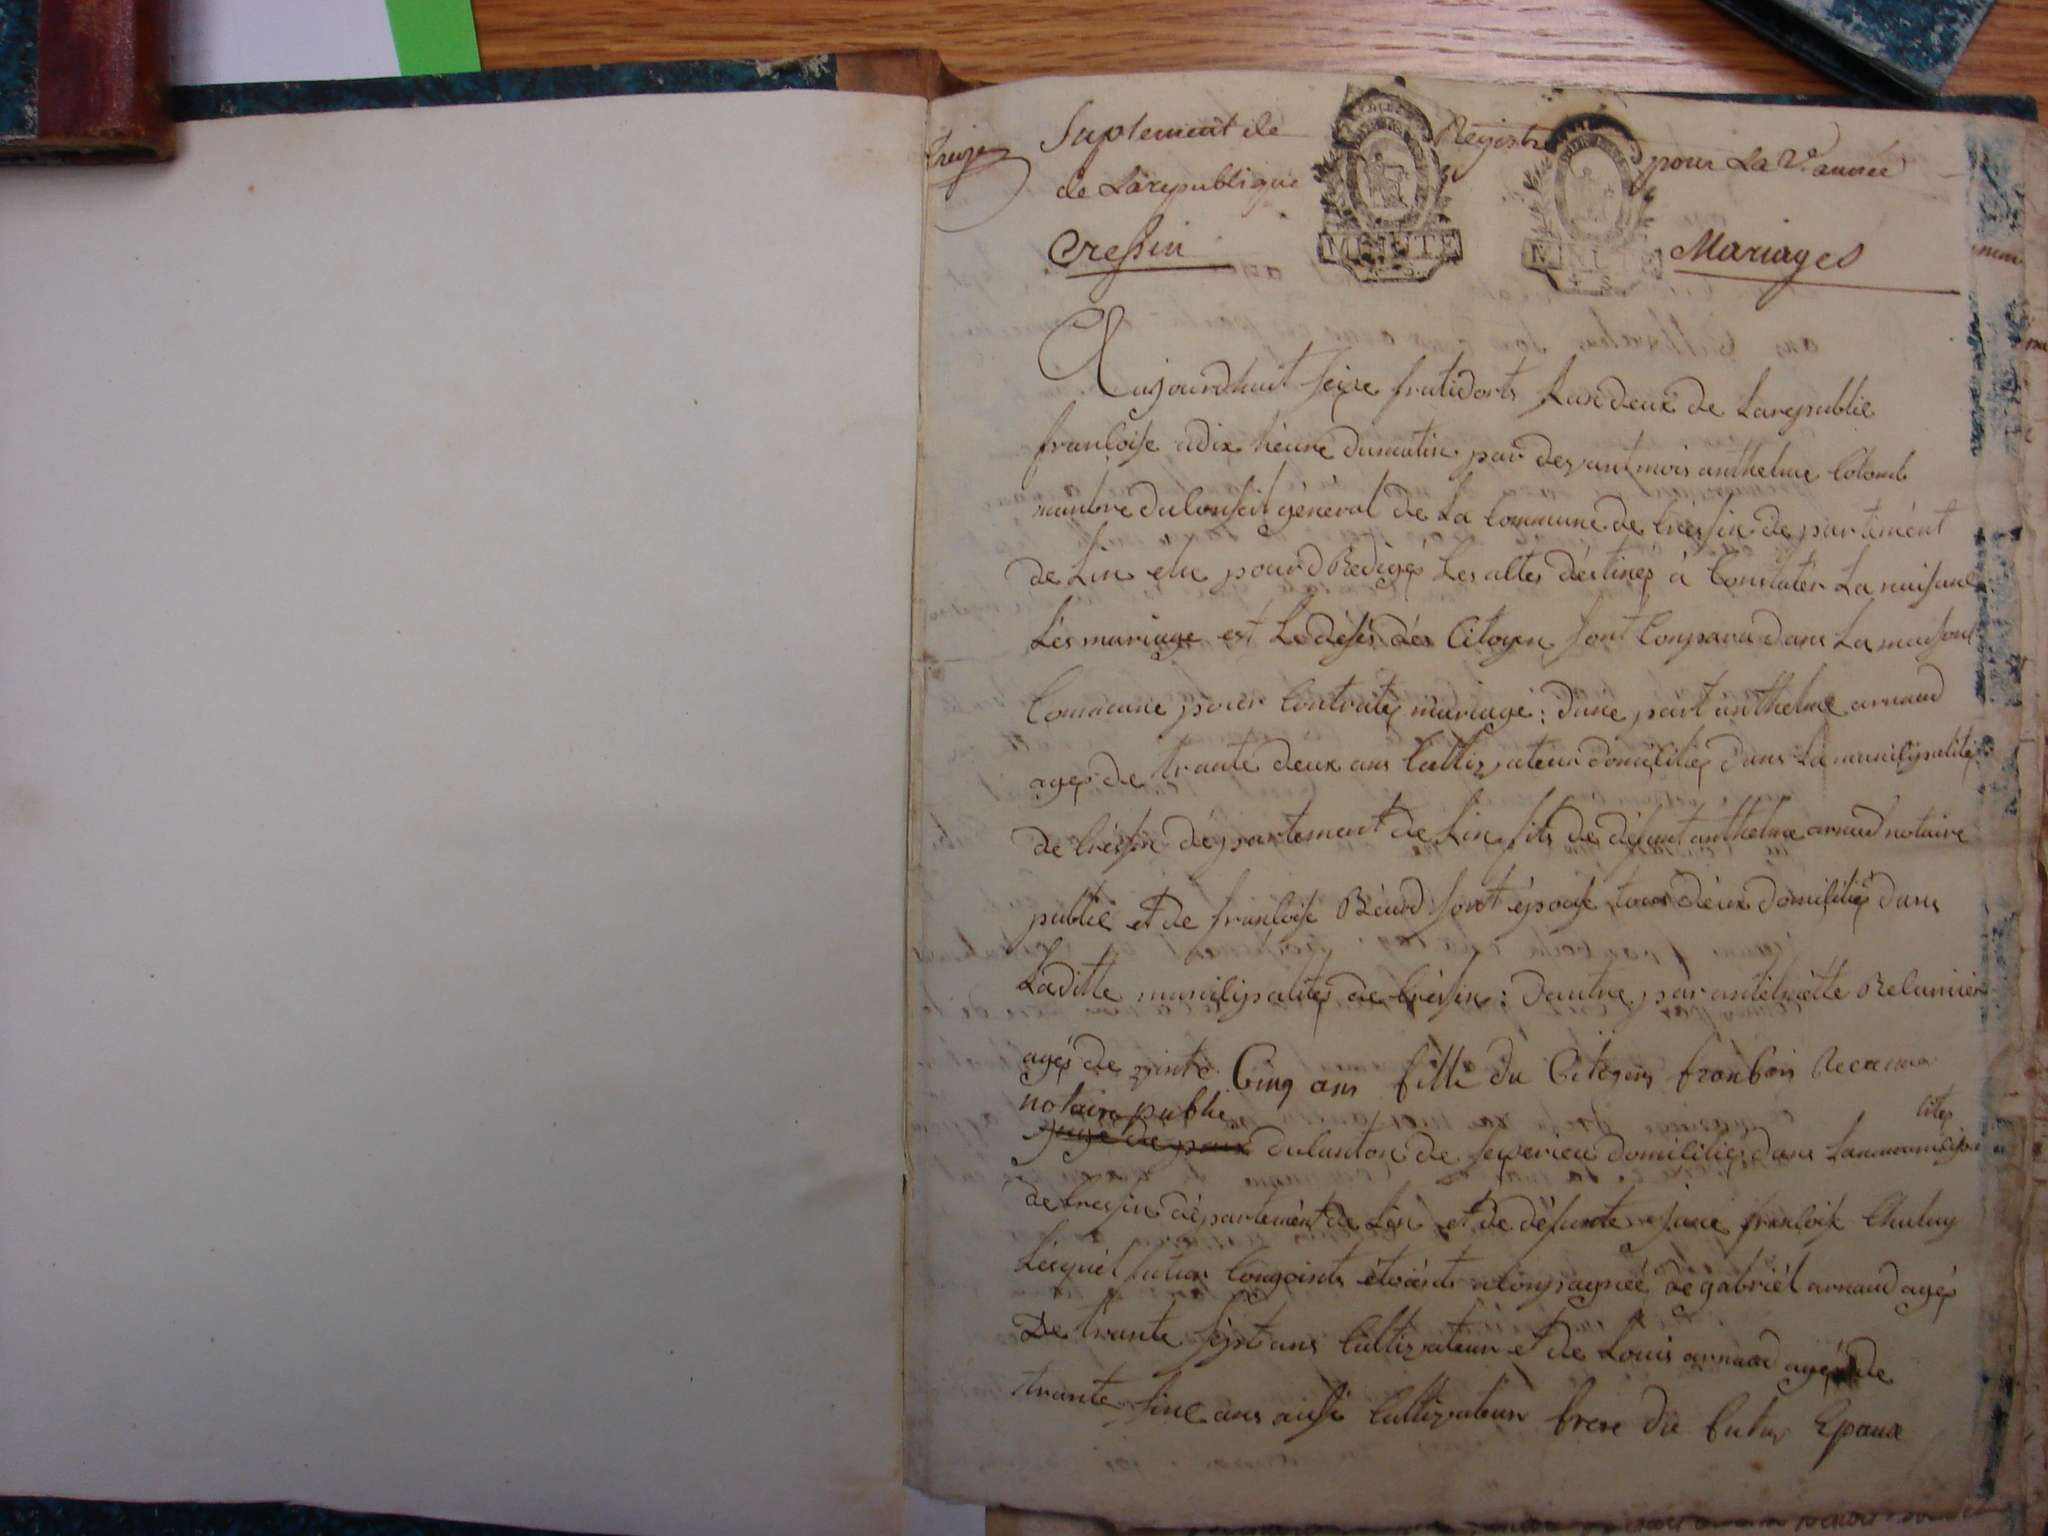 treize Suplement de Registre pour La Ve année
de La republique
MINUTE MINUTE
Cressin Mariages
Aujourdhuit seize frutidorts Lan deux de La republic
francoise a dix heure du matin par devant mois anthelme Colomb
membre du Conseil général de La Commune de Cressin departement
de Lin elu pour Redigés Les actes destinés à Constater La naisance
Les mariage est Le désés dés Citoyen sont Conparu dans La maison
Comune pour Contratés mariage : dune part anthelme arnaud
agés de trante deux ans Cultivateur domicilié dans La municipalités
de Cressin département de Lin fils de défunt anthelme arnaud notaire
public et de francoise Réard sont épouse tous deux domicilié dans
Laditte municipalités de Cressin : dautre par antelmette Recamier
agés de vinte Cinq ans fille du Citoyens francois Recamie
notaire public
juge de paix du Canton de seyserieu domicilié dans La municipa
lites
de Cressin département de Lin et de défunte francoise
Lesquel futur Conjoints étoients aconpagnéé de gabriél arnaud agés
De trante sept ans Cultivateur et de Louis arnaud agés de
trante sinc ans aussi Cultivateur frere du futur Epoux